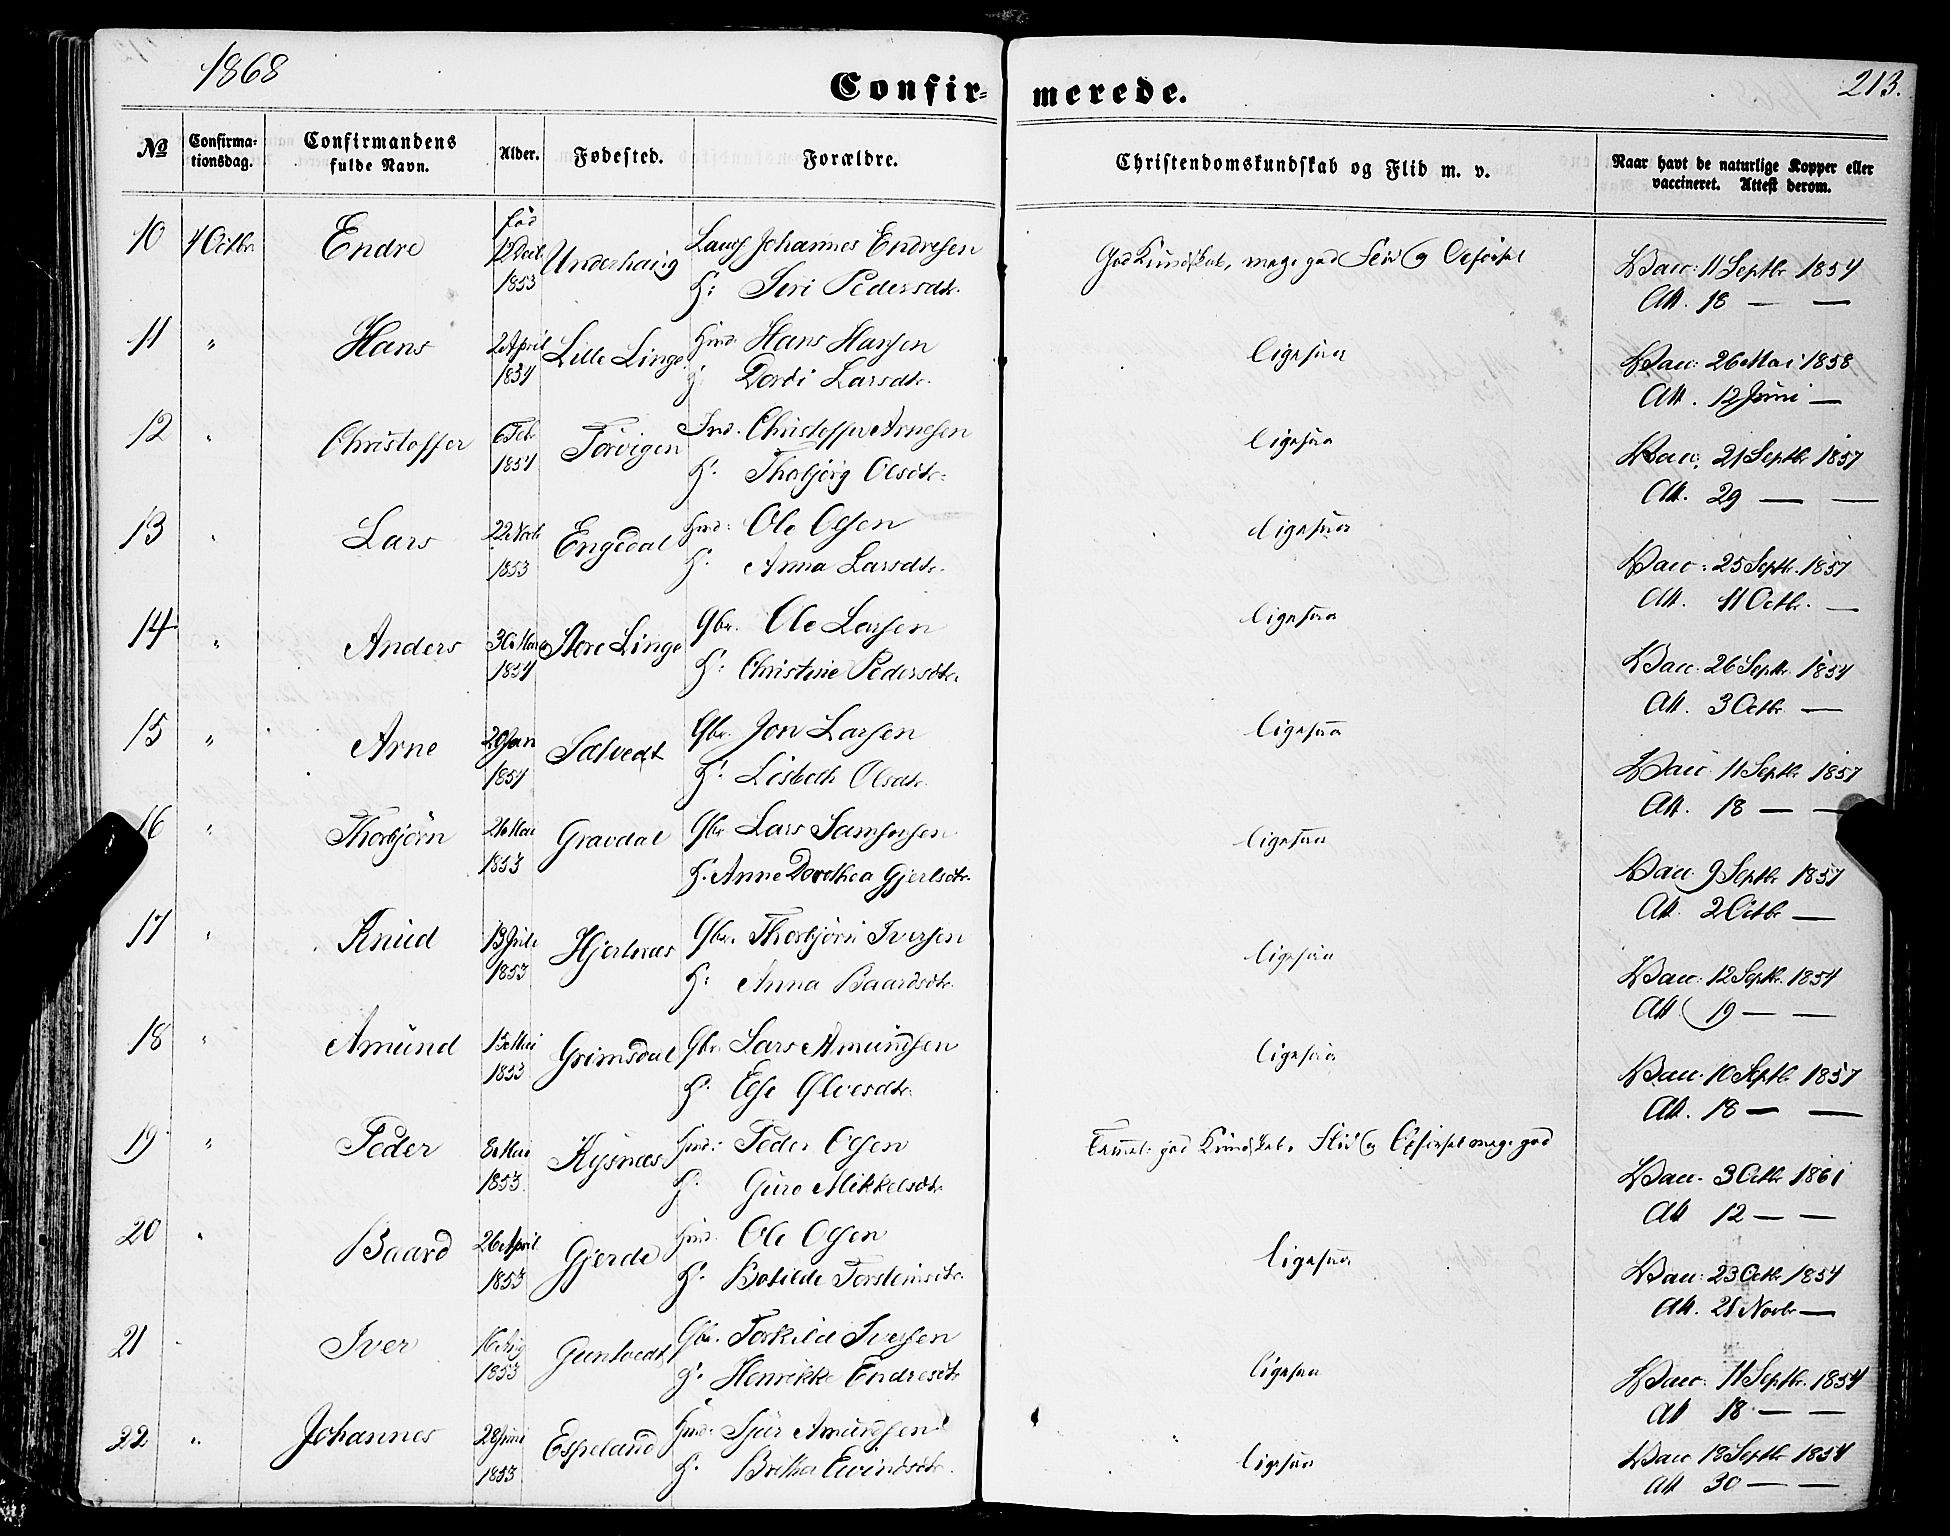 1868
213.
Confir- merede.
№
Confirma-
tionsdag.
Confirmandens
fulde Navn.
Alder.
Fødested.
Forældre.
Christendomskundskab og Flid m. v.
Naar havt de naturlige Kopper eller
vaccineret. Attest derom.
10 4 Octbr. Endre fød Underhaug Johannes Endresen
1853 H: Siri Pedersdtr.
God Kundskab, meget god Flid og Opførsel
Vacc: 11 Septbr 1854
Att. 18 — —
11 " Hans 2 April Lille Linge Hmd. Hans Hansen
1854 H: Dordi Larsdtr.
ligesaa
Vacc: 26 Mai 1858
Att. 12 Juni —
12 " Christoffer 6 Feb Torvigen Ind. Christoffer Arnesen
1854 H: Thobjørg Olsdtr.
ligesaa
Vacc. 21 Septbr 1857
Att. 29 — —
13 " Lars 22 Novb Engedal Hmd: Ole Olsen
1853 H. Anna Larsdtr.
ligesaa
Vacc: 25 Septbr. 1857
Att. 11 Octbr. —
14 " Anders 30 Marts Store Linge Gbr. Ole Larsen
1854 H: Christine Pedersdtr.
ligesaa
Vacc. 26 Septbr. 1854
Att. 3 Octbr —
15 " Arne 20 Jan Salvedt Gbr. Jon Larsen
1854 H: Lisbeth Olsdtr.
ligesaa
Vacc: 11 Septbr 1857
Att. 18 — —
16 " Thorbjørn 26 Mai Gravdal Gbr. Lars Samsonsen
1853 H. Anne Dorothea Gjertsdtr.
ligesaa
Vacc. 9 Septbr 1857
Att. 2 Octbr —
17 " Knud 13 Juli Hjertnæs Gbr. Thorbjørn Iversen
1853 H: Anna Baardsdtr.
ligesaa
Vacc: 12 Septbr. 1854
Att. 19 — —
18 " Amund 13 Mai Grimsdal Gbr. Lars Amundsen
1853 H: Else Glvesdtr.
ligesaa
Vacc. 10 Septb. 1857
Att. 18 — —
19 " Peder 8 Mai Kysnæs Hmd: Peder Olsen
1853. H. Guro Mikkelsdtr.
Temmel. god Kundskab, Flid og Opførsel meget god
Vacc. 3 Octbr 1861
Att 12 — —
20 " Baard 26 April Gjerde Hmd. Ole Olsen
1853 H. Botilde Torsteinsdtr.
ligesaa
Vacc: 23 Octbr 1854
Att. 21 Novbr —
21 " Iver 16 Aug Guntvedt Gbr. Torkild Iversen
1853 H. Henrikke Endresdtr
ligesaa
Vacc. 11 Septbr. 1854
Att 18 — —
22 " Johannes 28 Juni Espeland Hmd: Sjur Amundsen
1853 H. Britha Eivindsdtr.
ligesaa
Vacc 18 Septbr 1854
Att 30 — —